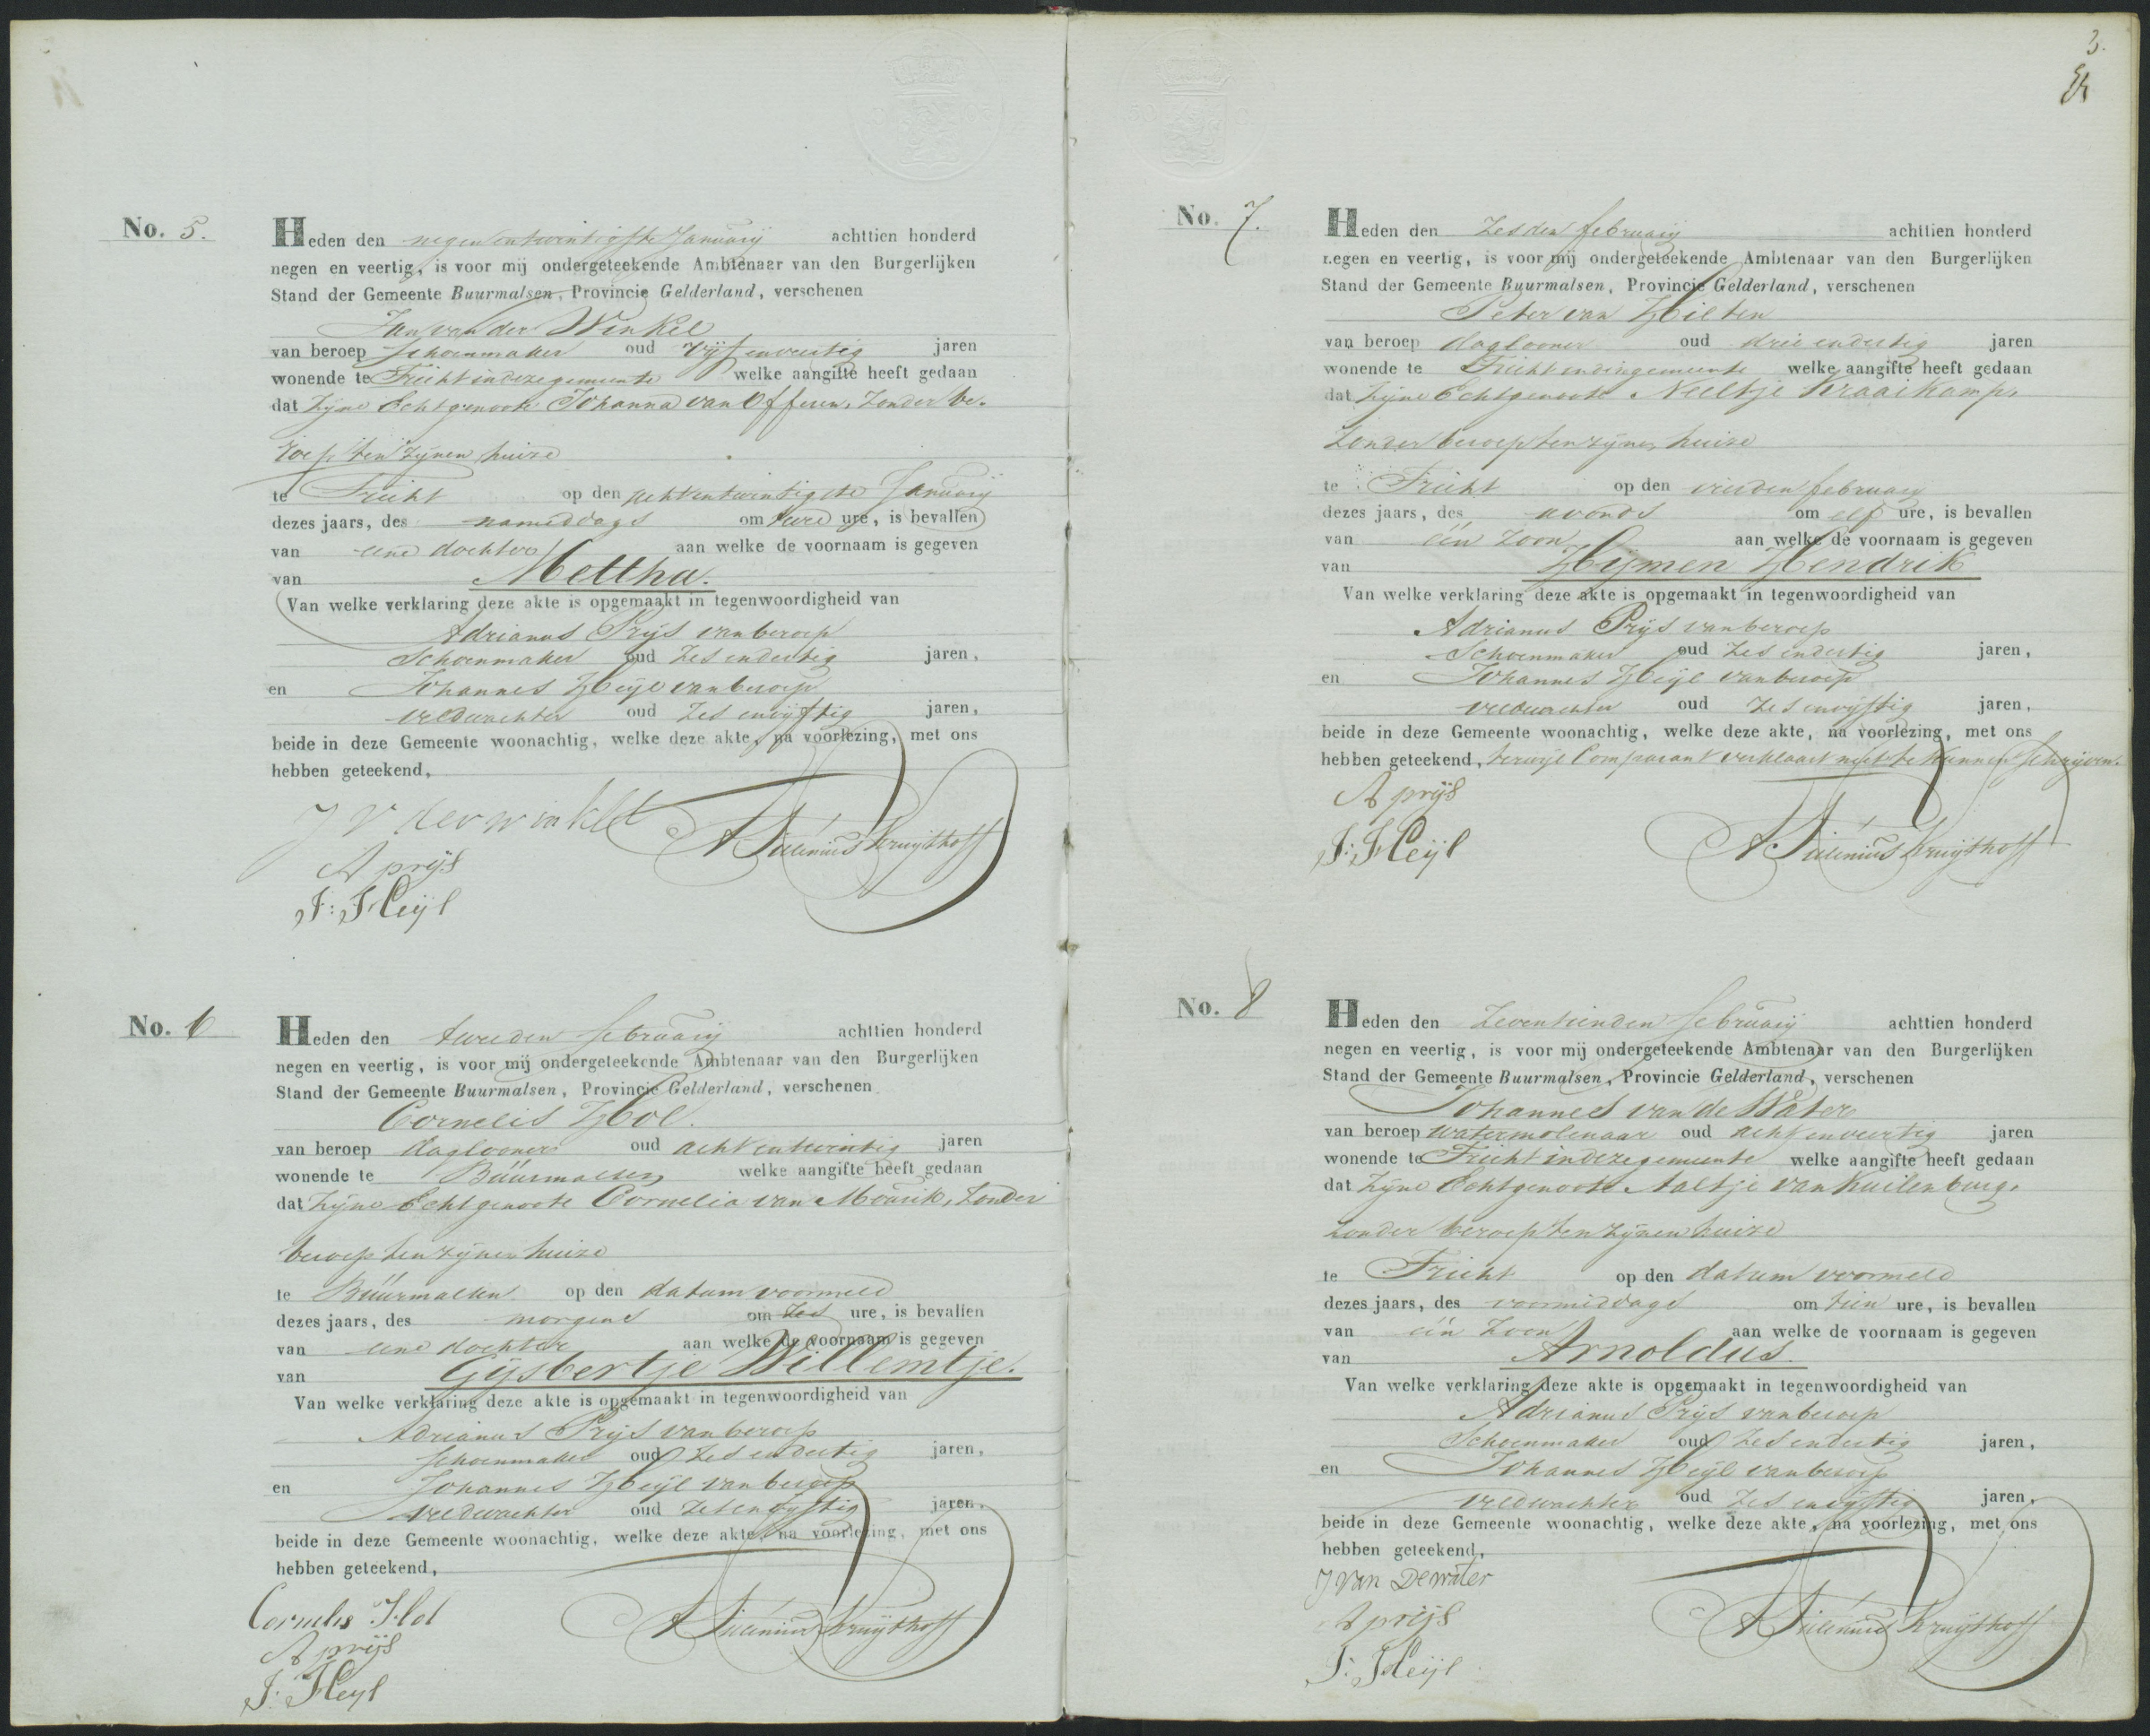 No. 5.
Heden den negenentwintigste Januarij achttien honderd
negen en veertig, is voor mij ondergeteekende Ambtenaar van den Burgerlijken
Stand der Gemeente Buurmalsen, Provincie Gelderland, verschenen
Jan van der Winkel
van beroep Schoenmaker oud vijf enveertig jaren
wonende te Tricht indeze gemeente welke aangifte heeft gedaan
dat zijne Echtgenoote Johanna van Offeren, Zonder be-
roep ten zijnen huize
te Tricht op den achtentwintigste Januarij
dezes jaars, des nameddags om twee ure, is bevallen
van eene dochter aan welke de voornaam is gegeven
van Mettha.
Van welke verklaring deze akte is opgemaakt in tegenwoordigheid van
Adrianus Prijs van beroep
Schoenmaker oud Zes endertig jaren,
en Johannes Heijl van beroep
veldwachter oud Zes envijftig jaren,
beide in deze Gemeente woonachtig, welke deze akte, na voorlezing, met ons
hebben geteekend,
J V derwinkel
A prijs
J: Heijl
No. 6
Heden den tweeden februarij achttien honderd
negen en veertig, is voor mij ondergeteekende Ambtenaar van den Burgerlijken
Stand der Gemeente Buurmalsen, Provincie Gelderland, verschenen
Cornelis Hol.
van beroep daglooner oud acht entwintig jaren
wonende te Buurmalsen welke aangifte heeft gedaan
dat zijne Echtgenoote Cornelia van Mourik, Zonder
beroep ten zijnen huize
te Buurmalsen op den datum voormeld
dezes jaars, des morgens om Zes ure, is bevallen
van eene dochter aan welke de voornaam is gegeven
van Gijsbertje Willemtje.
Van welke verklaring deze akte is opgemaakt in tegenwoordigheid van
Adrianus Prijs van beroep
Schoenmaker oud Zes endertig jaren,
en Johannes Heijl van beroep
veldwachter oud Zes envijftig jaren,
beide in deze Gemeente woonachtig, welke deze akte, na voorlezing, met ons
hebben geteekend,
Cornelis Hol
A prijs
J: Heyl
3.
No. 7.
Heden den Zesden februarij achttien honderd
negen en veertig, is voor mij ondergeteekende Ambtenaar van den Burgerlijken
Stand der Gemeente Buurmalsen, Provincie Gelderland, verschenen
Peter van Hilten
van beroep daglooner oud drie endertig jaren
wonende te Tricht indezegemeente welke aangifte heeft gedaan
dat zijne Echtgenoote Neeltje Kraaikamp,
Zonder beroep ten zijnen huize
te Tricht op den vierden februarij
dezes jaars, des avonds om elf ure, is bevallen
van één Zoon aan welke de voornaam is gegeven
van Hijmen Hendrik
Van welke verklaring deze akte is opgemaakt in tegenwoordigheid van
Adrianus Prijs van beroep
Schoenmaker oud Zes endertig jaren,
en Johannes Heijl van beroep
veldwachter oud Zes envijftig jaren,
beide in deze Gemeente woonachtig, welke deze akte, na voorlezing, met ons
hebben geteekend, terwijl Comparant verklaart niet te kunnen Schrijven.
A prijs
J: Heijl
No. 8
Heden den Zeventienden februarij achttien honderd
negen en veertig, is voor mij ondergeteekende Ambtenaar van den Burgerlijken
Stand der Gemeente Buurmalsen, Provincie Gelderland, verschenen
Johannes van de Water
van beroep watermolenaar oud acht enveertig jaren
wonende te Tricht indeze gemeente welke aangifte heeft gedaan
dat zijne Echtgenoote Aaltje van Kuilenburg,
Zonder beroep ten zijnen huize
te Tricht op den datum voormeld
dezes jaars, des voormiddags om tien ure, is bevallen
van één Zoon aan welke de voornaam is gegeven
van Arnoldus.
Van welke verklaring deze akte is opgemaakt in tegenwoordigheid van
Adrianus Prijs van beroep
Schoenmaker oud Zes endertig jaren,
en Johannes Heijl van beroep
veldwachter oud Zes envijftig jaren,
beide in deze Gemeente woonachtig, welke deze akte, na voorlezing, met ons
hebben geteekend,
J van Dewater
A prijs
J: Heijl